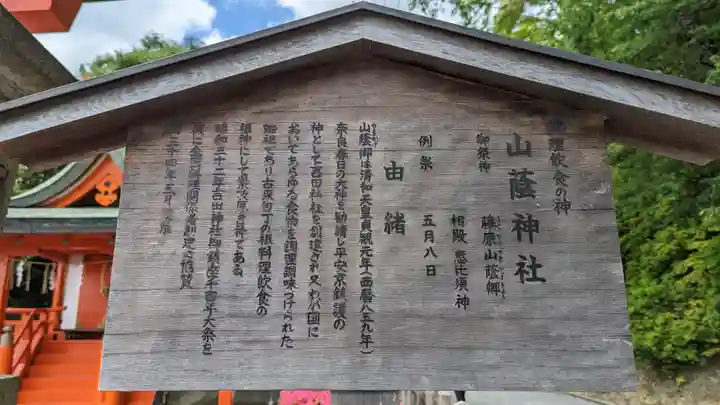 理飲食の神
山蔭神社
御祭神 藤原山蔭卿
相殿 恵比須神
例祭 五月八日
由緒
山蔭卿は清和天皇貞観元年(西暦八五九年)
奈良春日の大神を勧請し平安京鎮護の
神として吉田神社を創建され又わが国に
おいてあらゆる食物を調理調味づけられた
始祖であり古来包丁の祖料理飲食の
祖神にして崇敬厚き神である
昭和三十二年吉田神社御鎮座千百年大祭を
全国料理関係者